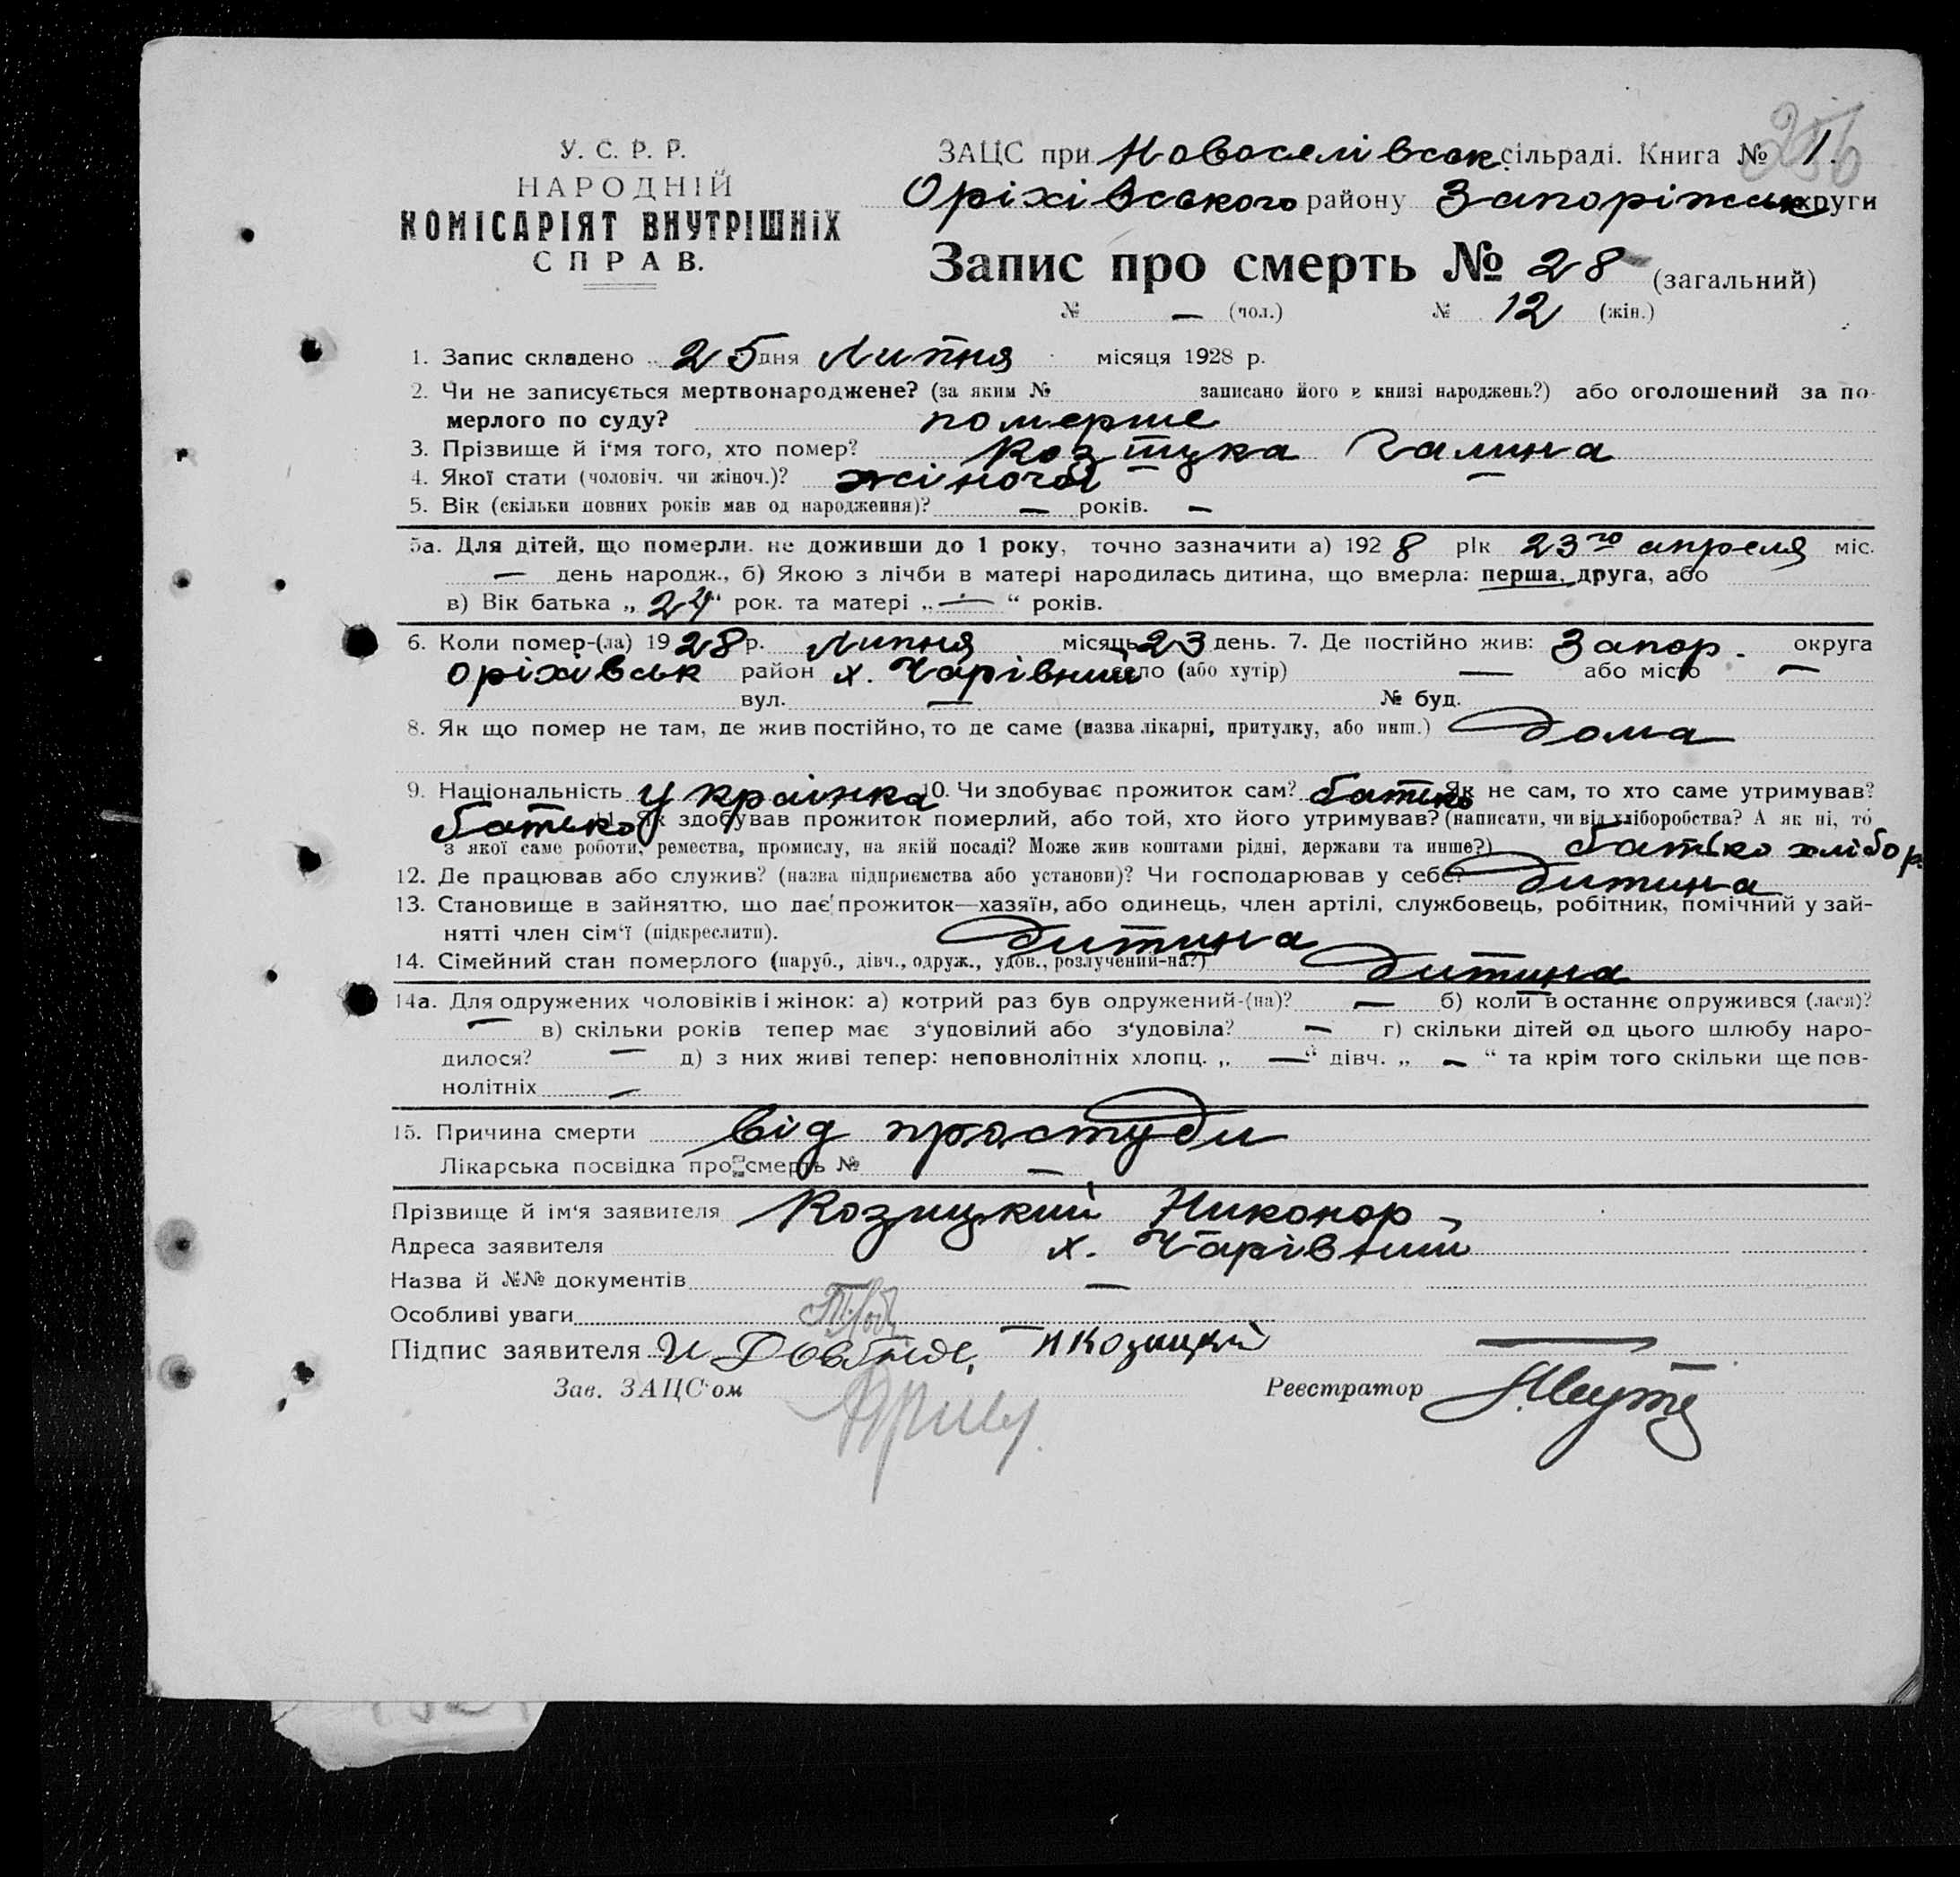 256
У. С. Р. Р.
НАРОДНІЙ
КОМІСАРІЯТ ВНУТРІШНІХ
СПРАВ.
ЗАЦС при Новоселівськ. сільраді. Книга № 1.
Оріхівського району Запоріжськ округи
Запис про смерть № 28 (загальний)
№ — (чол.) № 12 (жін.)
1. Запис складено 25 дня Липня місяця 1928 р.
2. Чи не записується мертвонароджене? (за яким № записано його в книзі народжень?) або оголошений за по-
мерлого по суду? померше
3. Прізвище й і'мя того, хто помер? Козицка Галина
4. Якої стати (чоловіч. чи жіноч.)? жіночої —
5. Вік (скільки повних років мав од народження)? — років. —
5а. Для дітей, що померли. не доживши до 1 року, точно зазначити а) 1928 рік 23го апреля міс.
— день народж., б) Якою з лічби в матері народилась дитина, що вмерла: перша, друга, або
в) Вік батька „ 24 “ рок. та матері „ — “ років.
6. Коли помер-(ла) 1928 р. Липня місяць 23 день. 7. Де постійно жив: Запор. округа
Оріхівськ район х. Чарівний село (або хутір) — або місто —
вул. — № буд.
8. Як що помер не там, де жив постійно, то де саме (назва лікарні, притулку, або инш.) дома
9. Національність Українка 10. Чи здобуває прожиток сам? батько Як не сам, то хто саме утримував?
батько 11. Як здобував прожиток померлий, або той, хто його утримував? (написати, чи від хліборобства? А як ні, то
з якої саме роботи, ремества, промислу, на якій посаді? Може жив коштами рідні, держави та инше?) батько хлібор.
12. Де працював або служив? (назва підприємства або установи)? Чи господарював у себе? дитина
13. Становище в зайняттю, що дає прожиток—хазяїн, або одинець, член артілі, службовець, робітник, помічний у зай-
нятті член сім'ї (підкреслити). дитина
14. Сімейний стан померлого (паруб., дівч., одруж., удов., розлучений-на?) дитина
14а. Для одружених чоловіків і жінок: а) котрий раз був одружений-(на)? — б) коли в останнє одружився (лася)?
— в) скільки років тепер має з'удовілий або з'удовіла? — г) скільки дітей од цього шлюбу наро-
дилося? — д) з них живі тепер: неповнолітніх хлопц. „ — “ дівч. „ — “ та крім того скільки ще пов-
нолітніх —
15. Причина смерти від простуди
Лікарська посвідка про смерть № —
Прізвище й ім'я заявителя Козицкий Никонор
Адреса заявителя х. Чарівний
Назва й №№ документів —
Особливі уваги
Підпис заявителя Н Козицкій —
Зав. ЗАЦС'ом Реєстратор